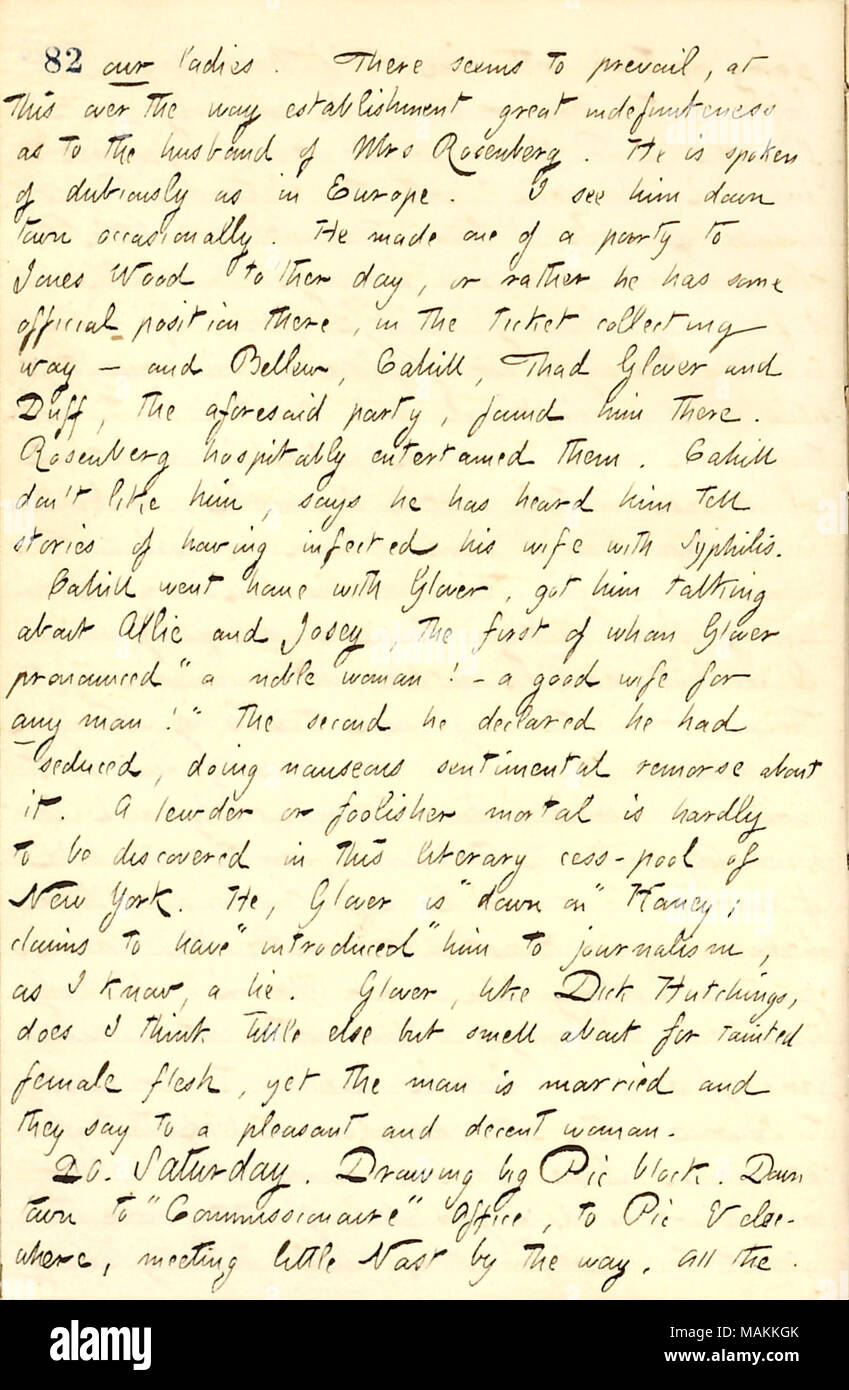 82 our ladies. There seems to prevail, at
this over the way establishment great indefiniteness
as to the husband of Mrs Rosenberg. He is spoken
of dubiously as in Europe. I see him down
town occasionally. He made one of a party to
Jones Wood t'other day, or rather he has some
official position there, in the ticket collecting
way — and Bellew, Cahill, Thad Glover and
Duff, the aforesaid party, found him there.
Rosenberg hospitably entertained them. Cahill
don't like him, says he has heard him tell
stories of having infected his wife with Syphilis.
Cahill went home with Glover, got him talking
about Allie and Josey, the first of whom Glover
pronounced "a noble woman! - a good wife for
any man!" The second he declared he had
seduced, doing nauseous sentimental remorse about
it. A lewder or foolisher mortal is hardly
to be discovered in this literary cess-pool of
New York. He, Glover is "down on" Haney;
claims to have "introduced" him to journalism,
as I know, a lie. Glover, like Dick Hutchings,
does I think little else but smell about for tainted
female flesh, yet the man is married and
they say to a pleasant and decent woman.
20. Saturday. Drawing big Pic block. Down
town to "Commissionaire" Office, to Pic & else-
where, meeting little Nast by the way. All the
alamy
Image ID: MAKKGK
www.alamy.com